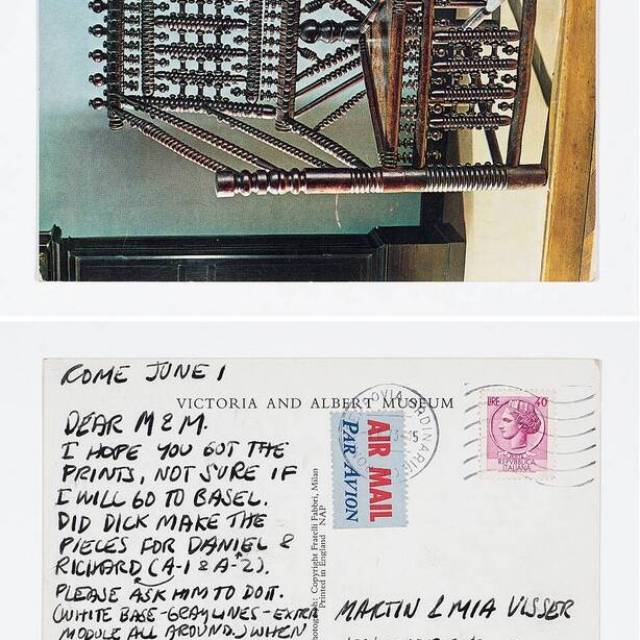 ROME JUNE 1
VICTORIA AND ALBERT MUSEUM
DEAR M & M.
I HOPE YOU GOT THE
PRINTS, NOT SURE IF
I WILL GO TO BASEL.
DID DICK MAKE THE
PIECES FOR DANIEL &
RICHARD (A-1 & A-2).
PLEASE ASK HIM TO DO IT.
(WHITE BASE-GRAY LINES-EXTRA
MODULE ALL AROUND.) WHEN
Photograph: Copyright Fratelli Fabbri, Milan
Printed in England NAP
AIR MAIL
PAR AVION
LIRE 40
REPVBBLICA
ITALIANA
MARTIN & MIA VISSER